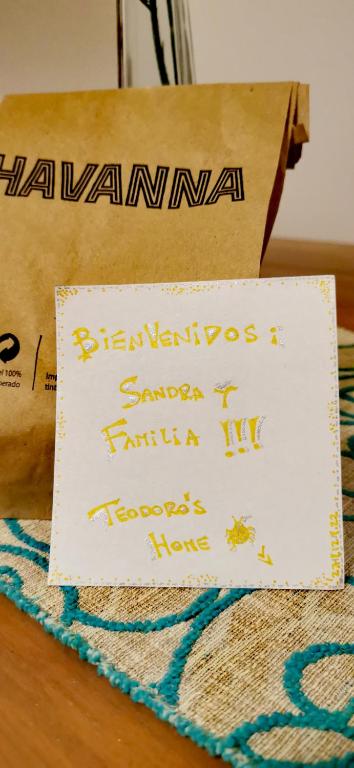 HAVANNA
el 100%
perado
Imp
tint
BIENVENIDOS ¡
SANDRA Y
FAMILIA !!!!
TEODORO'S
HOME